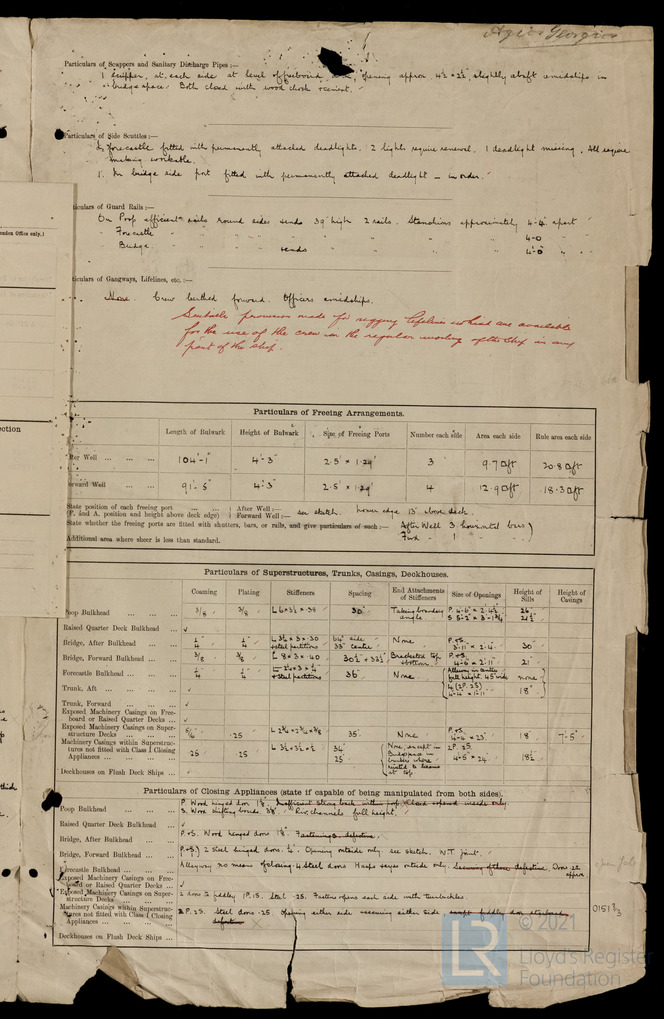 Agios Georgios
Particulars of Scuppers and Sanitary Discharge Pipes :—
1 scupper, at each side at level of freeboard opening approx 4½ × 2½ slightly abaft amidships in
bridge space. Both closed with wood chock & cement.
Particulars of Side Scuttles :—
In forecastle fitted with permanently attached deadlights. 2 lights require renewal. 1 deadlight missing. All require
making workable.
1. In bridge side port fitted with permanently attached deadlight — in order.
ticulars of Guard Rails :—
On Poop efficient rails round sides & ends 39" high 2 rails. Stanchions approximately 4'-4" apart
" Forecastle " " " " " " " 4-0 "
" Bridge " " & ends " " " 4'-0" " "
ticulars of Gangways, Lifelines, etc. :—
None. Crew berthed forward. Officers amidships.
Suitable provision made for rigging lifelines which are available
for the use of the crew in the regular working of the ship in any
part of the ship.
London Office only.)
ection
Particulars of Freeing Arrangements.
Length of Bulwark Height of Bulwark Size of Freeing Ports Number each side Area each side Rule area each side
fter Well ... ... ... 104'-1" 4'-3" 2.5' × 1.29' 3 9.7 □ft 20.8 □ft
orward Well ... ... 91'-5" 4'-3" 2.5' × 1.29' 4 12.9 □ft 18.3 □ft
State position of each freeing port ... ... ) After Well :—
(F. and A. position and height above deck edge) ) Forward Well :— see sketch. Lower edge 13" above deck.
State whether the freeing ports are fitted with shutters, bars, or rails, and give particulars of such :— After Well 3 horizontal bars
Additional area where sheer is less than standard. Fwd " 1 " "
Particulars of Superstructures, Trunks, Casings, Deckhouses.
Coaming Plating Stiffeners Spacing End Attachments of Stiffeners Size of Openings Height of Sills Height of Casings
Poop Bulkhead ... ... ... 3/8 3/8 L 6×3½×.38 30" Taking boundary angle
Raised Quarter Deck Bulkhead ...
Bridge, After Bulkhead ... ... ¼" ¼" L 3½×3×.30 & steel partitions 64" side 33" centre None P.&S. 3'-11" × 2'-4" 30"
Bridge, Forward Bulkhead ... 3/8 3/8 L 8×3×.40 30½ & 32½ Bracketed top & bottom P.&S. 4'-6" × 2'-11" 21"
Forecastle Bulkhead ... ... ¼ ¼ & steel partitions 36" None Alleyway in centre full height 45" wide none
Trunk, Aft ... ... ... 18"
Trunk, Forward ... ... ...
Exposed Machinery Casings on Free-
board or Raised Quarter Decks ...
Exposed Machinery Casings on Super-
structure Decks ... ... ... 5/16 .25 35" None P.&S. 4'-4" × 23" 18" 7'-5"
Machinery Casings within Superstruc-
tures not fitted with Class I Closing
Appliances ... ... ... .25 .25 L 3½×3½×½ 36" 25" None, except in Bunkers where riveted to beams at top 2P. 2S. 4'-5" × 24" 18½"
Deckhouses on Flush Deck Ships ...
Particulars of Closing Appliances (state if capable of being manipulated from both sides).
Poop Bulkhead ... ... ... P. Wood hinged door 1⅝".
S. Wood shifting boards 3⅛". Riv. channels full height.
Raised Quarter Deck Bulkhead ...
Bridge, After Bulkhead ... ... P.&S. Wood hinged doors 1⅝". Fastenings defective.
Bridge, Forward Bulkhead ... P.&S.) 2 Steel hinged doors ¼". Opening outside only. see sketch. W.T. joint.
Forecastle Bulkhead ... ... Alleyway no means of closing. 4 Steel doors. Hasps & eyes outside only.
Exposed Machinery Casings on Free-
board or Raised Quarter Decks ...
Exposed Machinery Casings on Super-
structure Decks ... ... ... 2 doors to fiddley 1P. 1S. Steel .25. Fastens opens each side with turnbuckles.
Machinery Casings within Superstruc-
tures not fitted with Class I Closing
Appliances ... ... ... 2P. 2S. Steel doors .25. Opening either side securing either side, except fiddley door starboard
defective
Deckhouses on Flush Deck Ships ...
© 2021
Lloyd's Register
Foundation